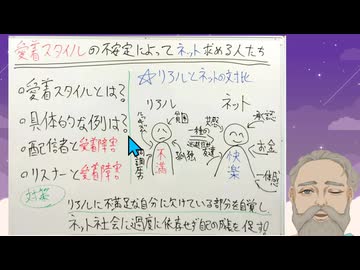 愛着スタイルの不安定によってネット求める人たち
○愛着スタイルとは?
○具体的な例は?
○配信者と愛着障害
○リスナーと愛着障害
対策
☆リアルとネットの対比
リアル
ネット
貧困
孤独
不満
一種の
共感
快楽
承認
お金
一体感
リアルに不満足な自分に欠けている部分を自覚し、
ネット社会に過度に依存せず自己の成長を促す!